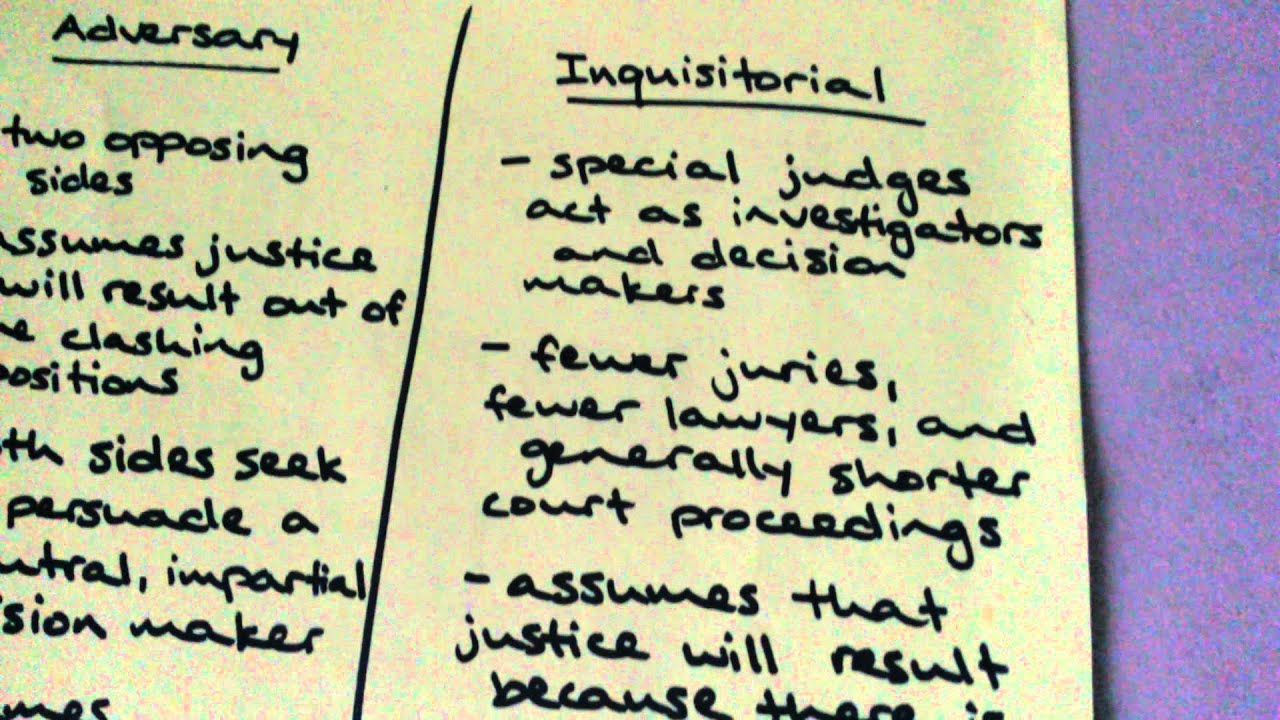 Adversary
two opposing
sides
assumes justice
will result out of
clashing
positions
sides seek
persuade a
impartial
maker
Inquisitorial
- special judges
act as investigators
and decision
makers
- fewer juries,
fewer lawyers, and
generally shorter
court proceedings
- assumes that
justice will result
because there is